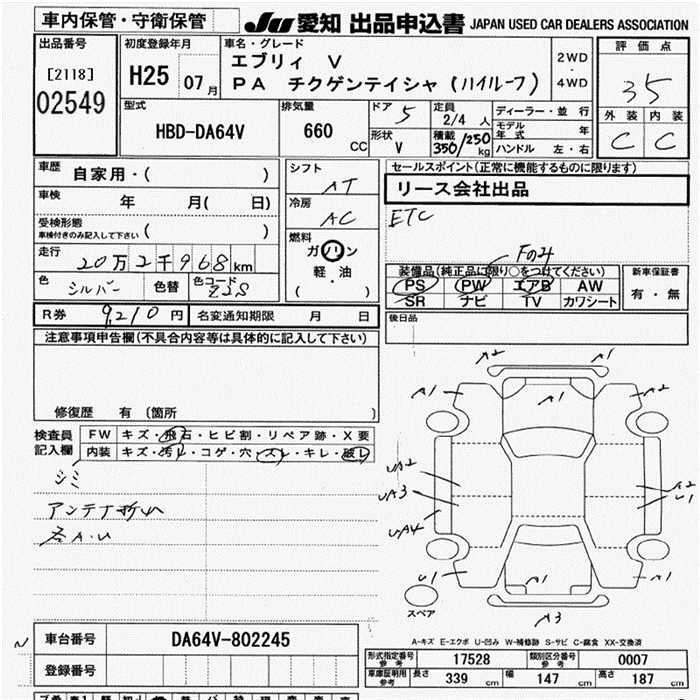 車内保管・守衛保管
JU 愛知 出品申込書 JAPAN USED CAR DEALERS ASSOCIATION
出品番号
[2118]
02549
初度登録年月
H25 07月
車名・グレード
エブリィ V
PA チクゲンテイシャ(ハイルーフ)
2WD
・
4WD
評価点
35
外装 内装
C C
型式
HBD-DA64V
排気量
660 CC
ドア 5
形状 V
定員
2/4人
積載
350/250 kg
ディーラー・並行
モデル年式 年
ハンドル 左・右
車歴
自家用・( )
車検
年 月( 日)
受検形態
車検付きのみ記入して下さい ( )
走行
20万2千968km
色 シルバー 色替 色コード Z2S
シフト
AT
冷房
AC
燃料
ガソリン
軽・油
( )
セールスポイント(正常に機能するものに限ります)
リース会社出品
ETC
Fのみ
装備品(純正品に限り○をつけてください)
PS PW エアB AW
SR ナビ TV カワシート
新車保証書
有・無
R券 9,210円 名変通知期限 月 日
後日品
注意事項申告欄(不具合内容等は具体的に記入して下さい)
修復歴 有 〔箇所 〕
検査員記入欄
FW キズ・飛石・ヒビ割・リペア跡・X要
内装 キズ・汚レ・コゲ・穴・スレ・キレ・破レ
シミ
アンテナ折レ
各A・U
A2 A1
A1 A1 A2
UA2
UA3
UA4
A2
U1
U1 A1 A1
A3
スペア
A-キズ E-エクボ U-凹み W-補修跡 S-サビ C-腐食 XX-交換済
N
車台番号 DA64V-802245
登録番号
形式指定番号 参考 17528 類別区分番号 参考 0007
車庫証明用 参考 長さ 339 cm 幅 147 cm 高さ 187 cm